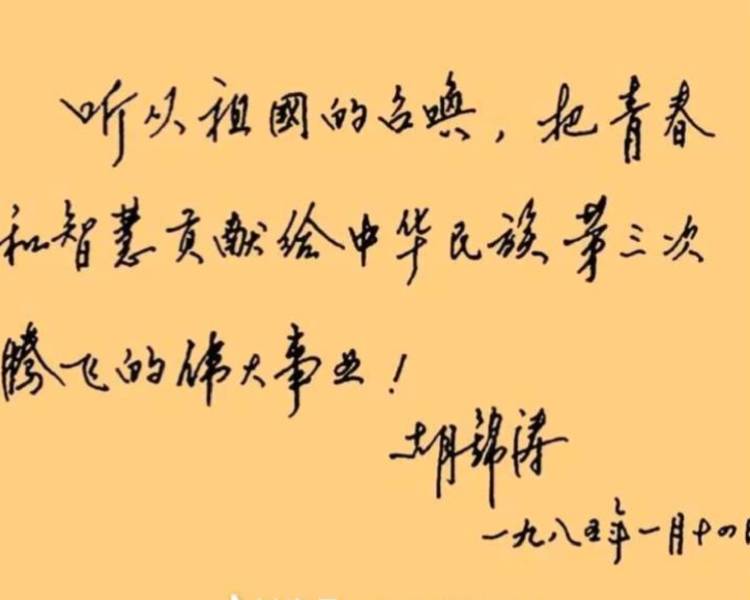 听从祖國的召唤，把青春
和智慧贡献给中华民族第三次
腾飞的伟大事业！
胡锦涛
一九八五年一月十四日